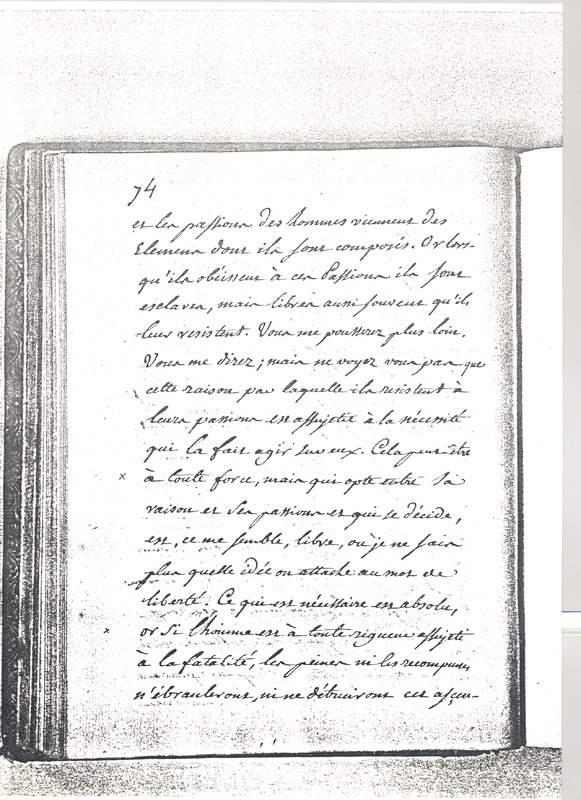 74
et les passions des hommes viennent des
Elemens dont ils sont composés. Or lors-
qu'ils obéissent à ces Passions ils sont
esclaves, mais libres aussi souvent qu'ils
leur resistent. Vous me pousserez plus loin.
Vous me direz ; mais ne voyez vous pas que
cette raison par laquelle ils resistent à
leurs passions est assujetie à la nécessité
qui la fait agir sur eux. Cela peut-être
x à toute force, mais qui opte entre sa
raison et ses passions et qui se décide,
est, ce me semble, libre, où je ne sais
plus quelle idée on attache au mot de
liberté. Ce qui est nécessaire est absolu,
x or si l'homme est à toute rigueur assujeti
à la fatalité, les peines ni les recompenses
n'ébranleront, ni ne détruiront cet ascen-